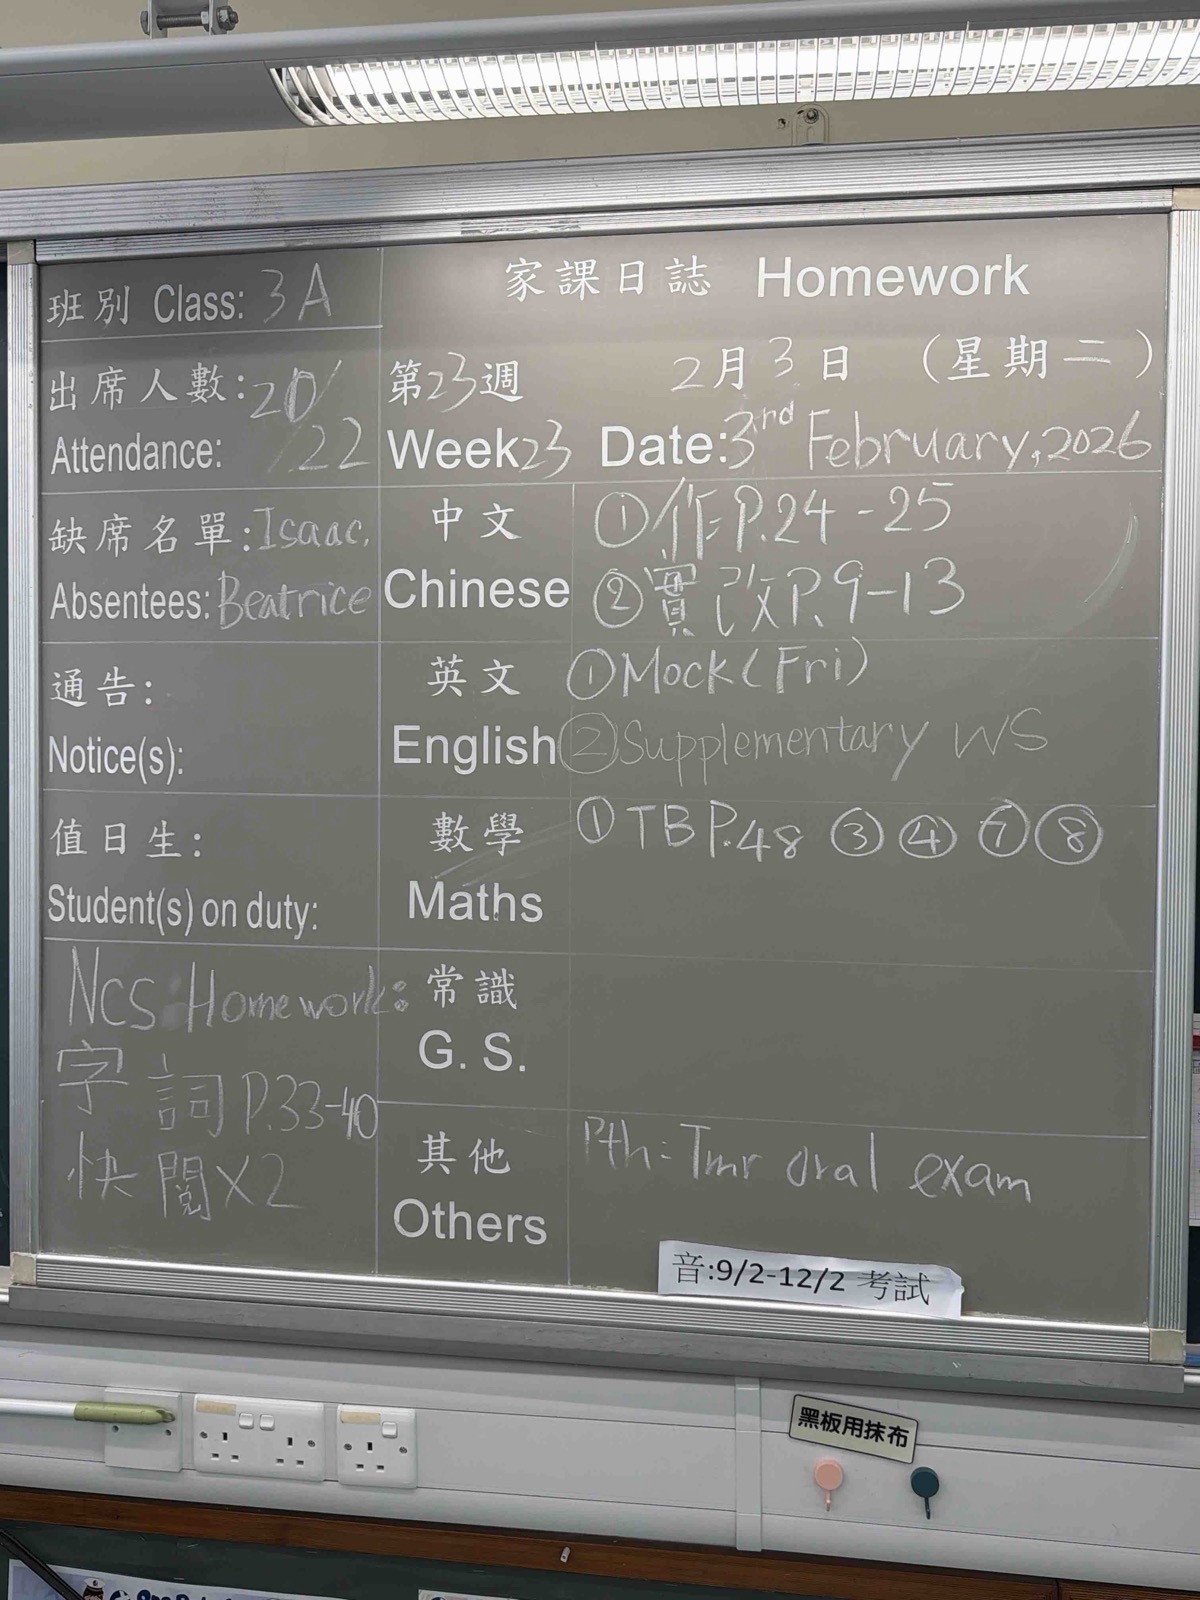 班別 Class: 3A
出席人數: 20/
Attendance: /22
缺席名單: Isaac,
Absentees: Beatrice
通告:
Notice(s):
值日生:
Student(s) on duty:
NCS Homework:
字詞 P.33-40
快閱X2
家課日誌 Homework
第23週 2月3日 (星期二)
Week23 Date: 3rd February, 2026
中文 ①作 P.24-25
Chinese ②實改 P.9-13
英文 ①Mock (Fri)
English ②Supplementary WS
數學 ①TB P.48 ③ ④ ⑦ ⑧
Maths
常識
G. S.
其他 Pth: Tmr oral exam
Others
音:9/2-12/2 考試
黑板用抹布